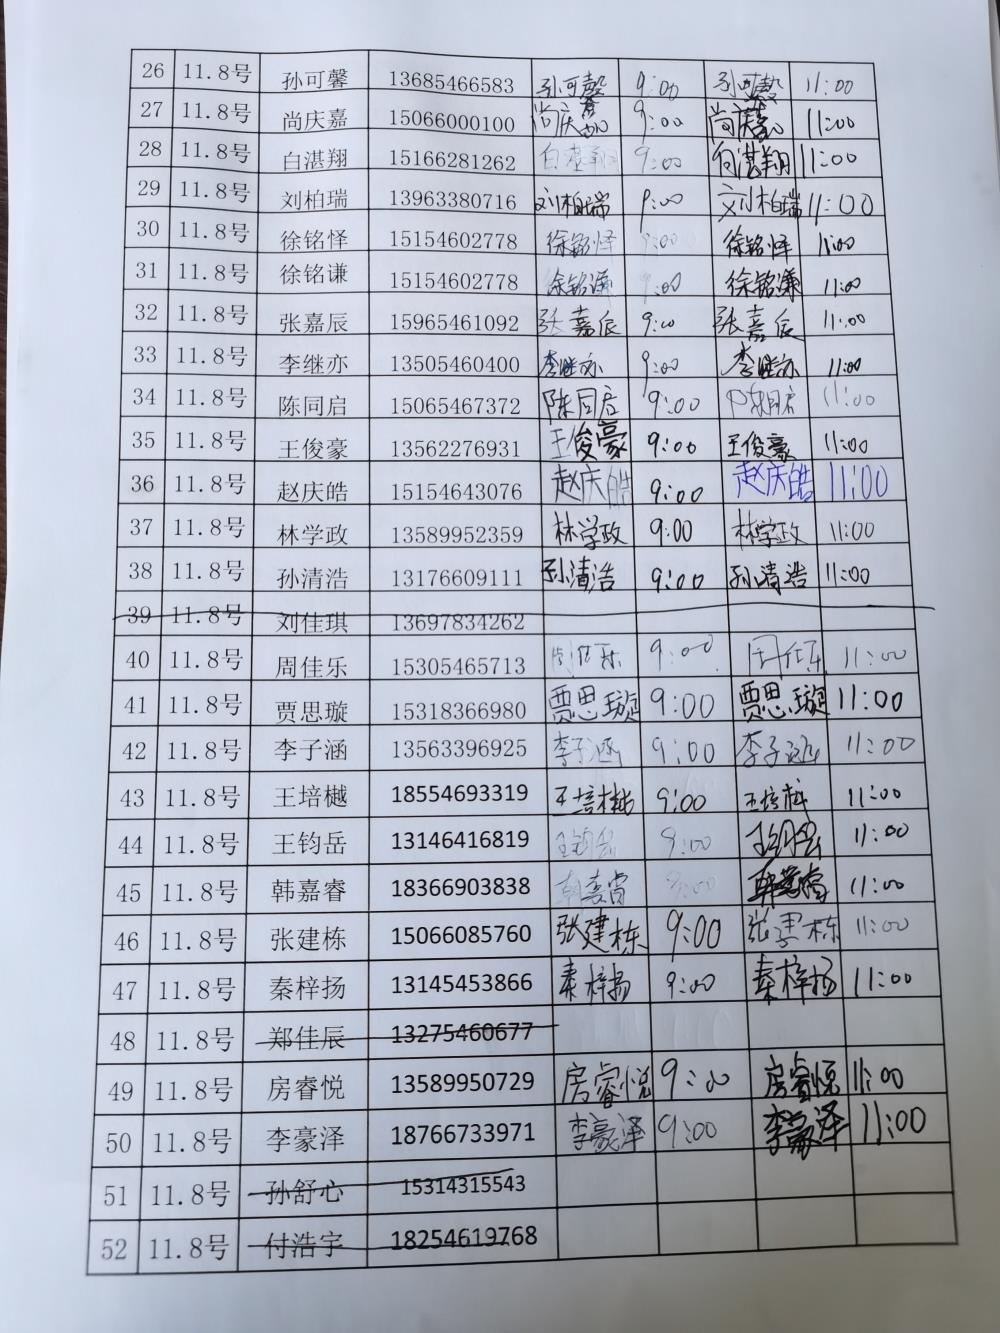 26 11.8号 孙可馨 13685466583 孙可馨 9:00 孙可馨 11:00
27 11.8号 尚庆嘉 15066000100 尚庆嘉 9:00 尚庆嘉 11:00
28 11.8号 白湛翔 15166281262 白湛翔 9:00 白湛翔 11:00
29 11.8号 刘柏瑞 13963380716 刘柏瑞 9:00 刘柏瑞 11:00
30 11.8号 徐铭怿 15154602778 徐铭怿 9:00 徐铭怿 11:00
31 11.8号 徐铭谦 15154602778 徐铭谦 9:00 徐铭谦 11:00
32 11.8号 张嘉辰 15965461092 张嘉辰 9:00 张嘉辰 11:00
33 11.8号 李继亦 13505460400 李继亦 9:00 李继亦 11:00
34 11.8号 陈同启 15065467372 陈同启 9:00 陈同启 11:00
35 11.8号 王俊豪 13562276931 王俊豪 9:00 王俊豪 11:00
36 11.8号 赵庆皓 15154643076 赵庆皓 9:00 赵庆皓 11:00
37 11.8号 林学政 13589952359 林学政 9:00 林学政 11:00
38 11.8号 孙清浩 13176609111 孙清浩 9:00 孙清浩 11:00
39 11.8号 刘佳琪 13697834262
40 11.8号 周佳乐 15305465713 周佳乐 9:00 周佳乐 11:00
41 11.8号 贾思璇 15318366980 贾思璇 9:00 贾思璇 11:00
42 11.8号 李子涵 13563396925 李子涵 9:00 李子涵 11:00
43 11.8号 王培樾 18554693319 王培樾 9:00 王培樾 11:00
44 11.8号 王钧岳 13146416819 王钧岳 9:00 王钧岳 11:00
45 11.8号 韩嘉睿 18366903838 韩嘉睿 9:00 韩嘉睿 11:00
46 11.8号 张建栋 15066085760 张建栋 9:00 张建栋 11:00
47 11.8号 秦梓扬 13145453866 秦梓扬 9:00 秦梓扬 11:00
48 11.8号 郑佳辰 13275460677
49 11.8号 房睿悦 13589950729 房睿悦 9:00 房睿悦 11:00
50 11.8号 李豪泽 18766733971 李豪泽 9:00 李豪泽 11:00
51 11.8号 孙舒心 15314315543
52 11.8号 付浩宇 18254619768